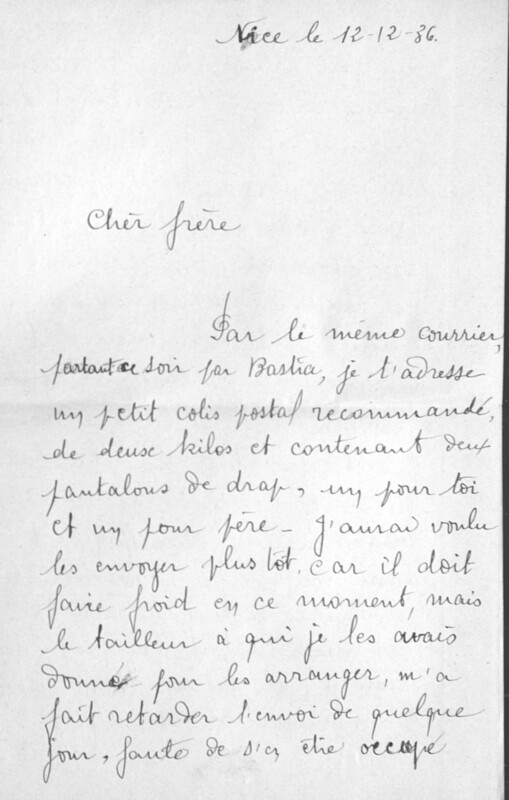 Nice le 12-12-36.
Chèr frère
Par le même courrier,
partant ce soir par Bastia, je t'adresse
un petit colis postal recommandé,
de deuse kilos et contenant deux
pantalons de drap, un pour toi
et un pour père - J'aurai voulu
les envoyer plus tôt, car il doit
faire froid en ce moment, mais
le tailleur à qui je les avais
donné pour les arranger, m'a
fait retarder l'envoi de quelque
jour, faute de s'en être occupé